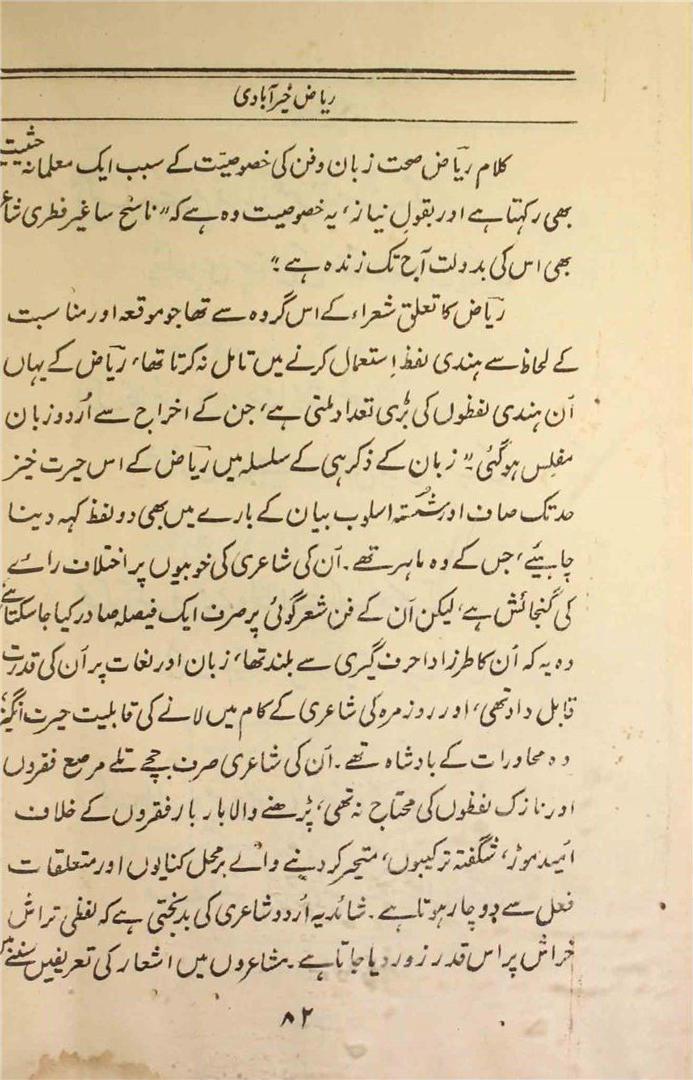 ریاض خیرآبادی
کلام ریاض صحت زبان و فن کی خصوصیت کے سبب ایک معلمانہ حثیت
بھی رکھتا ہے اور بقولِ نیاز، یہ خصوصیت وہ ہے کہ "ناسخ سا غیر فطری شاع
بھی اس کی بدولت آج تک زندہ ہے۔"
ریاض کا تعلق شعراء کے اس گروہ سے تھا جو موقعہ اور مناسبت
کے لحاظ سے ہندی لفظ اِستعمال کرنے میں تامل نہ کرتا تھا، ریاض کے یہاں
اُن ہندی لفظوں کی بڑی تعداد ملتی ہے، جن کے اخراج سے اُردو زبان
مفلِس ہوگئی۔" زبان کے ذکر ہی کے سلسلہ میں ریاض کے اس حیرت خیز
حد تک صاف اور شُستہ اسلوب بیان کے بارے میں بھی دو لفظ کہہ دینا
چاہیئے، جس کے وہ ماہر تھے۔ اُن کی شاعری کی خوبیوں پر اختلاف رائے
کی گنجائش ہے، لیکن اُن کے فن شعر گوئی پر صرف ایک فیصلہ صادر کیا جاسکتا ہے،
وہ یہ کہ اُن کا طرز ادا حرف گیری سے بلند تھا، زبان اور لغات پر اُن کی قدرت
قابل داد تھی، اور روز مرہ کی شاعری کے کام میں لانے کی قابلیت حیرت انگیز
وہ محاورات کے بادشاہ تھے۔ اُن کی شاعری صرف جچے تلے مرصع فقروں
اور نازک لفظوں کی محتاج نہ تھی، پڑھنے والا بار بار فقروں کے خلاف
اُمید موڑ، شگفتہ ترکیبوں، متحیر کر دینے والے برمحل کنایوں اور متعلقات
فعل سے دو چار ہوتا ہے۔ شائد یہ اُردو شاعری کی بدبختی ہے کہ لفظی تراش
خراش پر اس قدر زور دیا جاتا ہے۔ مشاعروں میں اشعار کی تعریفیں سننے میں
۸۲